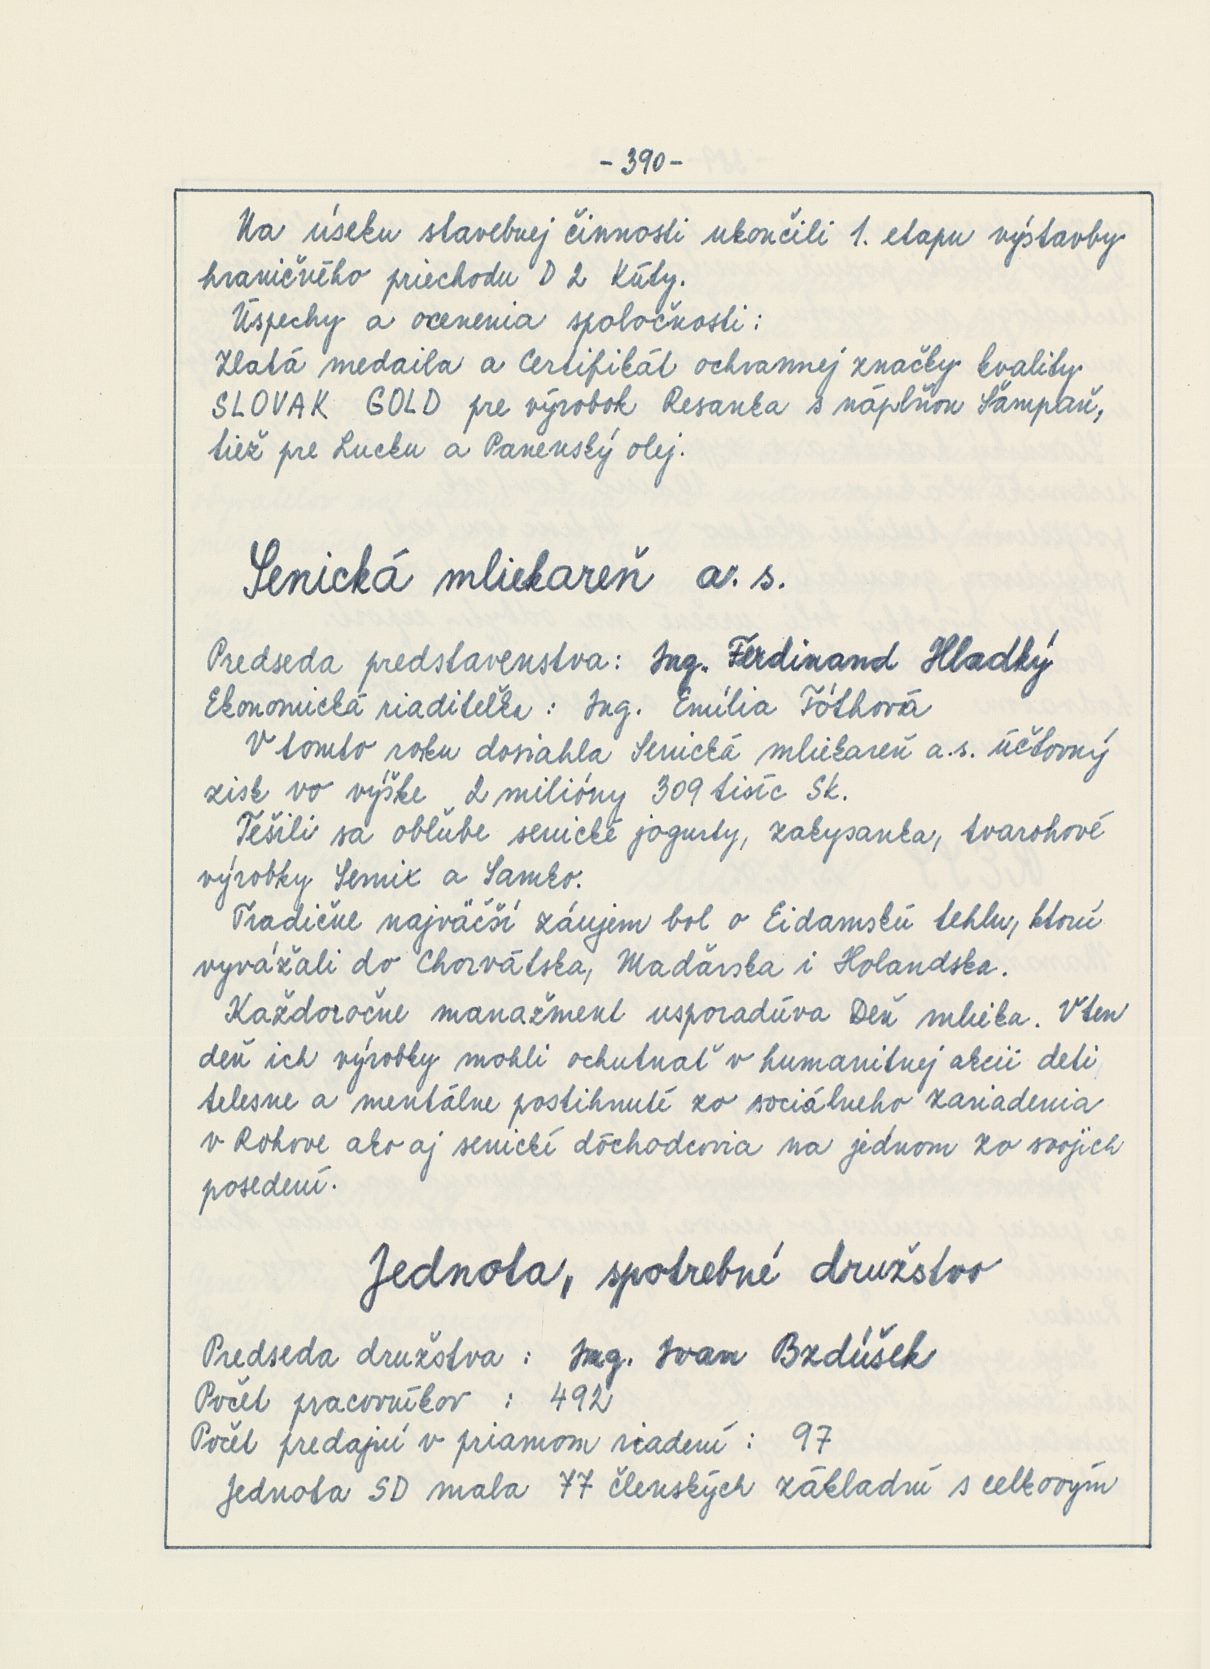 - 390 -
Na úseku stavebnej činnosti ukončili 1. etapu výstavby
hraničného priechodu D 2 Kúty.
Úspechy a ocenenia spoločnosti:
Zlatá medaila a Certifikát ochrannej značky kvality
SLOVAK GOLD pre výrobok Resanka s náplňou Šampaň,
tiež pre Lucku a Panenský olej.
Senická mliekareň a. s.
Predseda predstavenstva: Ing. Ferdinand Hladký
Ekonomická riaditeľka : Ing. Emília Tóthová
V tomto roku dosiahla Senická mliekareň a.s. účtovný
zisk vo výške 2 milióny 309 tisíc Sk.
Tešili sa obľube senické jogurty, zakysanka, tvarohové
výrobky Senix a Samko.
Tradične najväčší záujem bol o Eidamskú tehlu, ktorú
vyvážali do Chorvátska, Maďarska i Holandska.
Každoročne manažment usporadúva Deň mlieka. V ten
deň ich výrobky mohli ochutnať v humanitnej akcii deti
telesne a mentálne postihnuté zo sociálneho zariadenia
v Rohove ako aj senickí dôchodcovia na jednom zo svojich
posedení.
Jednota, spotrebné družstvo
Predseda družstva : Ing. Ivan Bzdúšek
Počet pracovníkov : 492
Počet predajní v priamom riadení : 97
Jednota SD mala 77 členských základní s celkovým